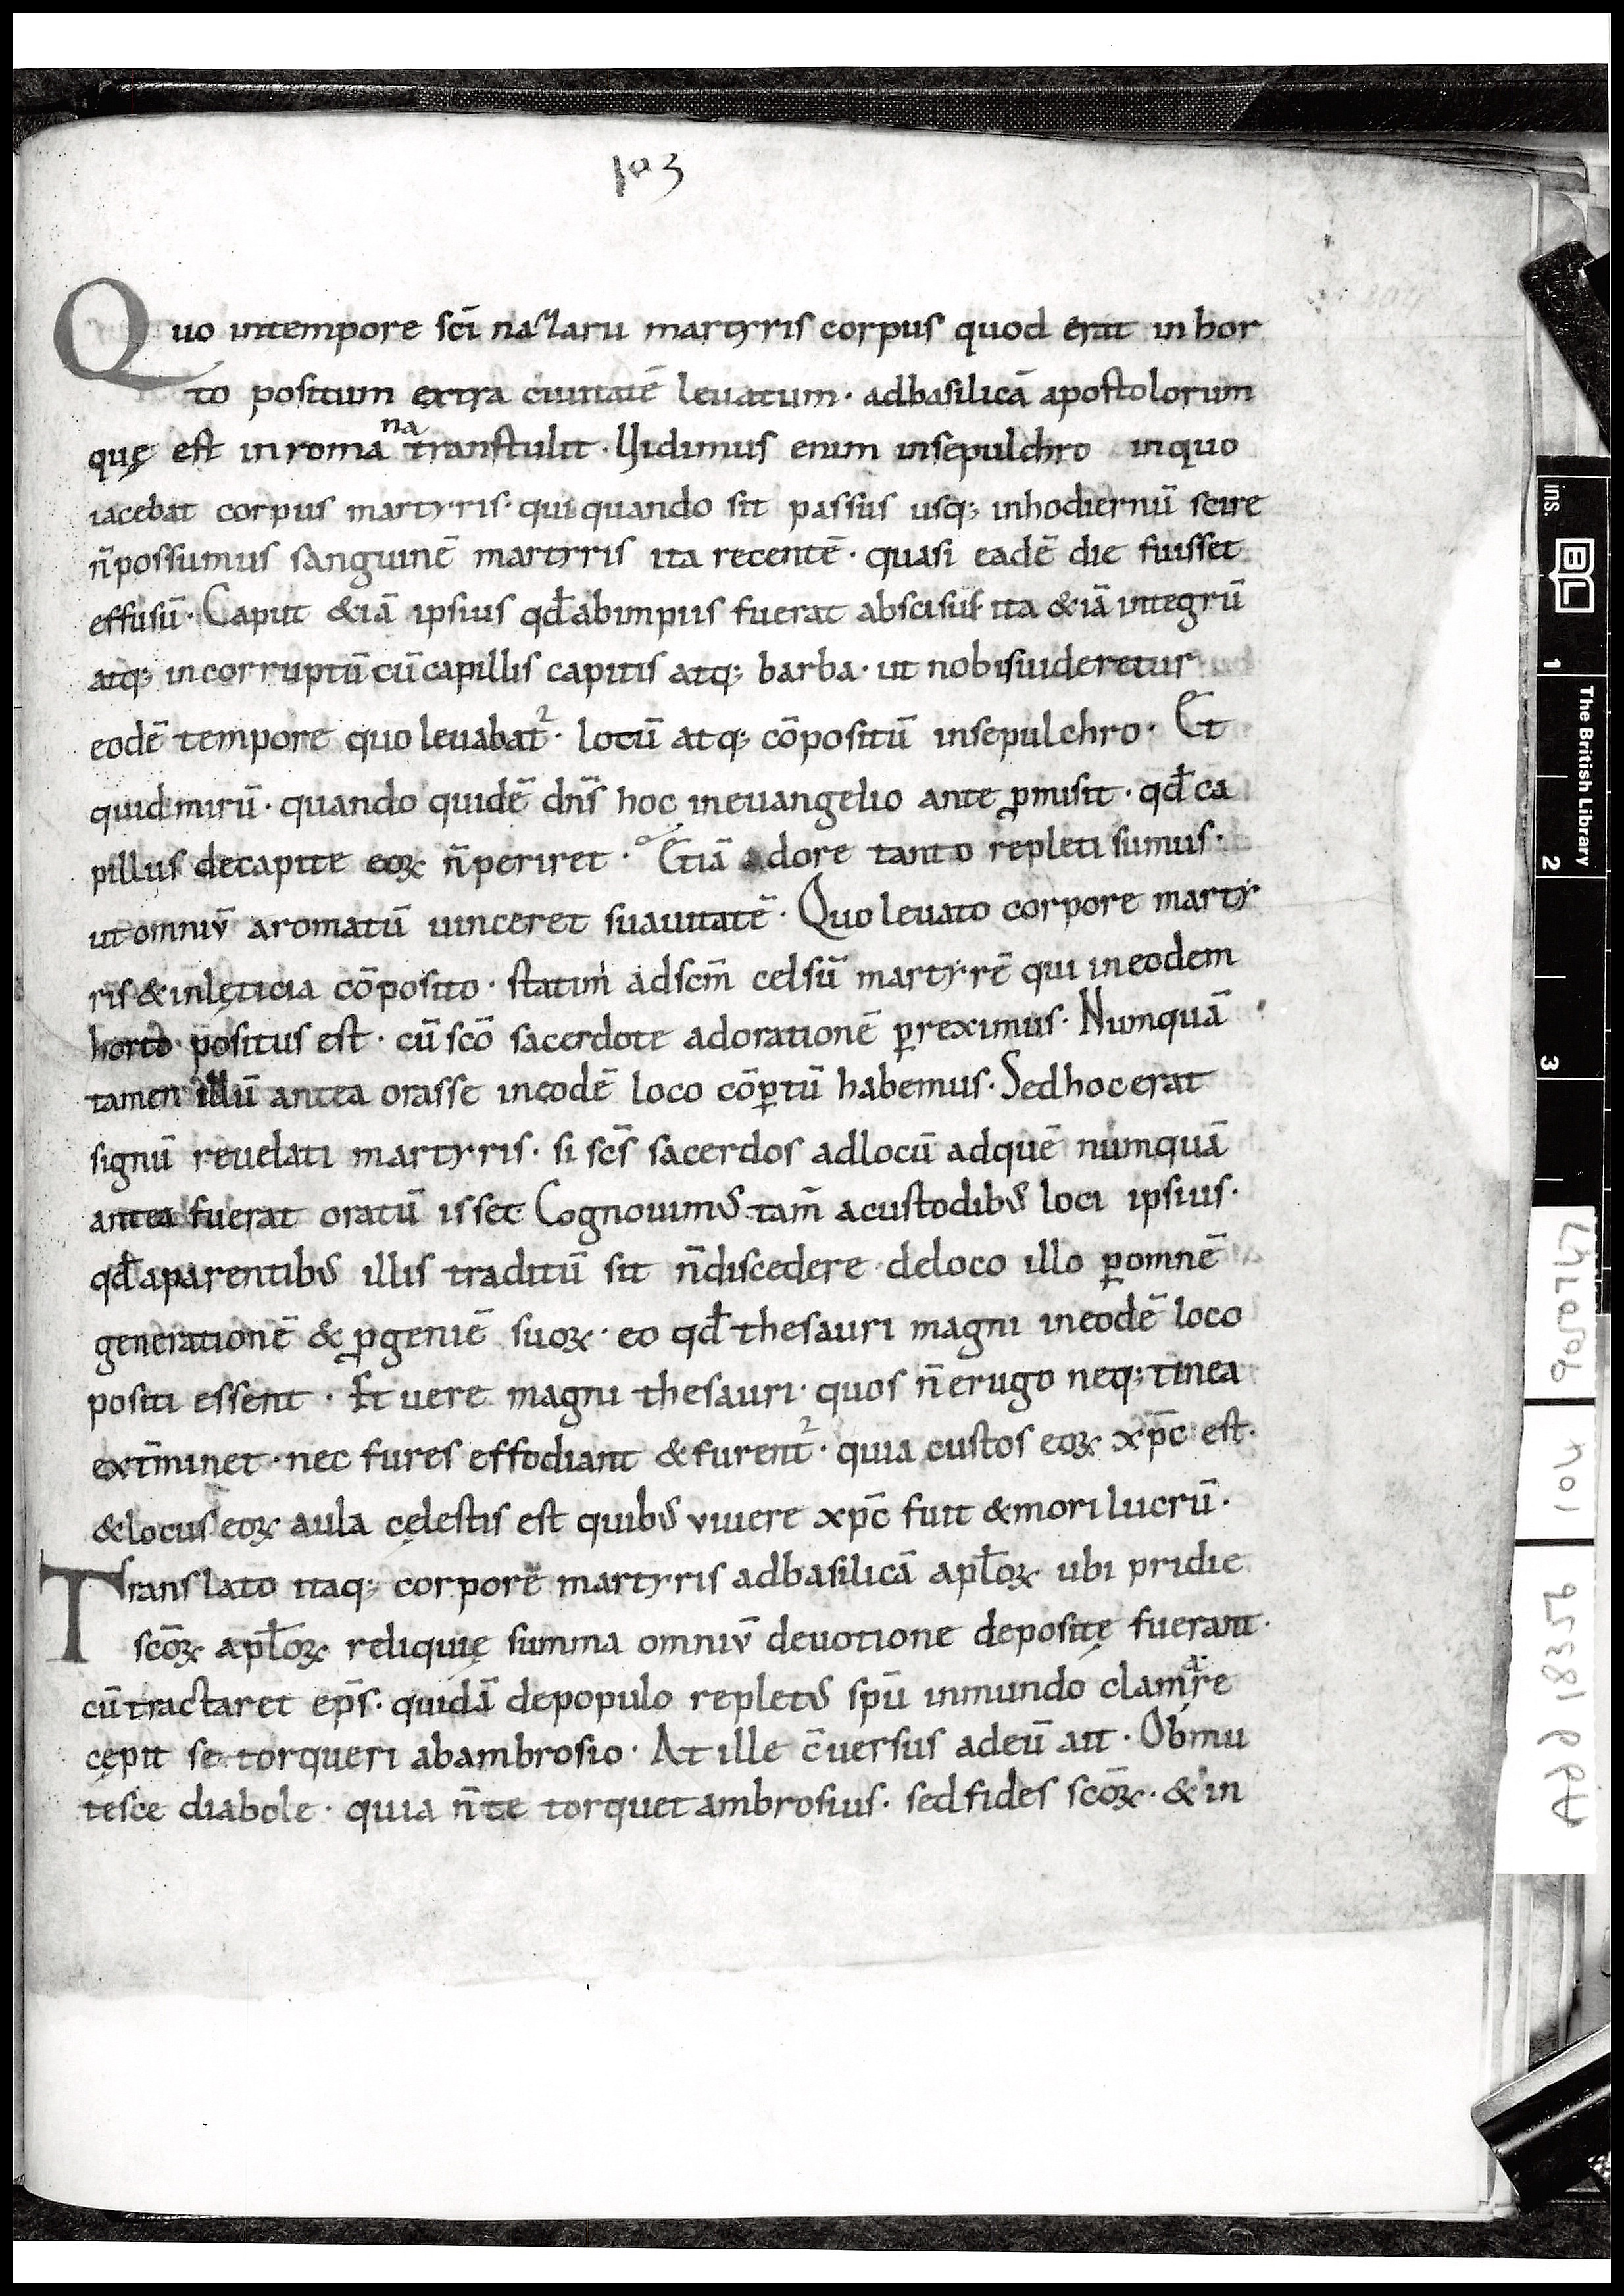 103
Quo intempore scı̄ nazarii martyris corpus quod erat in hor
to positum extra ciuitatē leuatum· adbasilicā apostolorum
quę est in romana transtulit· Uidimus enim insepulchro inquo
iacebat corpus martyris· qui quando sit passus usq; inhodiernū scire
n̄possumus sanguinē martyris ita recentē· quasi eadē die fuisset
effusū· Caput &iā ipsius qđ abimpiis fuerat abscisū· ita &iā integrū
atq; incorruptū cū capillis capitis atq; barba· ut nobisuideretur
eodē tempore quo leuabat᷑· lotū atq; cōpositū insepulchro· Et
quid mirū· quando quidē dn̄s hoc ineuangelio ante ꝓmisit· qđ ca
pillus decapite eoꝝ n̄periret· Etiā odore tanto repleti sumus·
ut omniū aromatū uinceret suauitatē· Quo leuato corpore marty
ris & inlęticia cōposito· statim adscm̄ celsū martyrē qui ineodem
horto positus est· cū scō sacerdote adorationē ꝑreximus· Numquā
tamen illū antea orasse ineodē loco cōꝑtū habemus· Sed hoc erat
signū reuelati martyris· si sc̄s sacerdos adlocū adquē numquā
antea fuerat oratū isset Cognouimꝰ tam̄ acustodibꝰ loci ipsius·
qđ aparentibꝰ illis traditū sit n̄discedere deloco illo ꝑomnē
generationē & ꝓgeniē suoꝝ· eo qđ thesauri magni ineodē loco
positi essent· Et uere magni thesauri· quos n̄ erugo neq; tinea
ext̄minet· nec fures effodiant & furent᷑· quia custos eoꝝ xp̄c est·
& locus eoꝝ aula cęlestis est quibꝰ viuere xp̄c fuit & mori lucrū·
Translato itaq; corpore martyris adbasilicā apl̄oꝝ ubi pridie
scōꝝ apl̄oꝝ reliquię summa omniū deuotione depositę fuerant·
cū tractaret ep̄s· quidā depopulo repletꝰ sp̄u inmundo clamare
cępit se torqueri abambrosio· At ille c̄uersus adeū ait· Obmu
tesce diabole· quia n̄ te torquet ambrosius· sed fides scōꝝ· & in
ins.
1
2
3
BL
The British Library
9050747
104
Add 18356